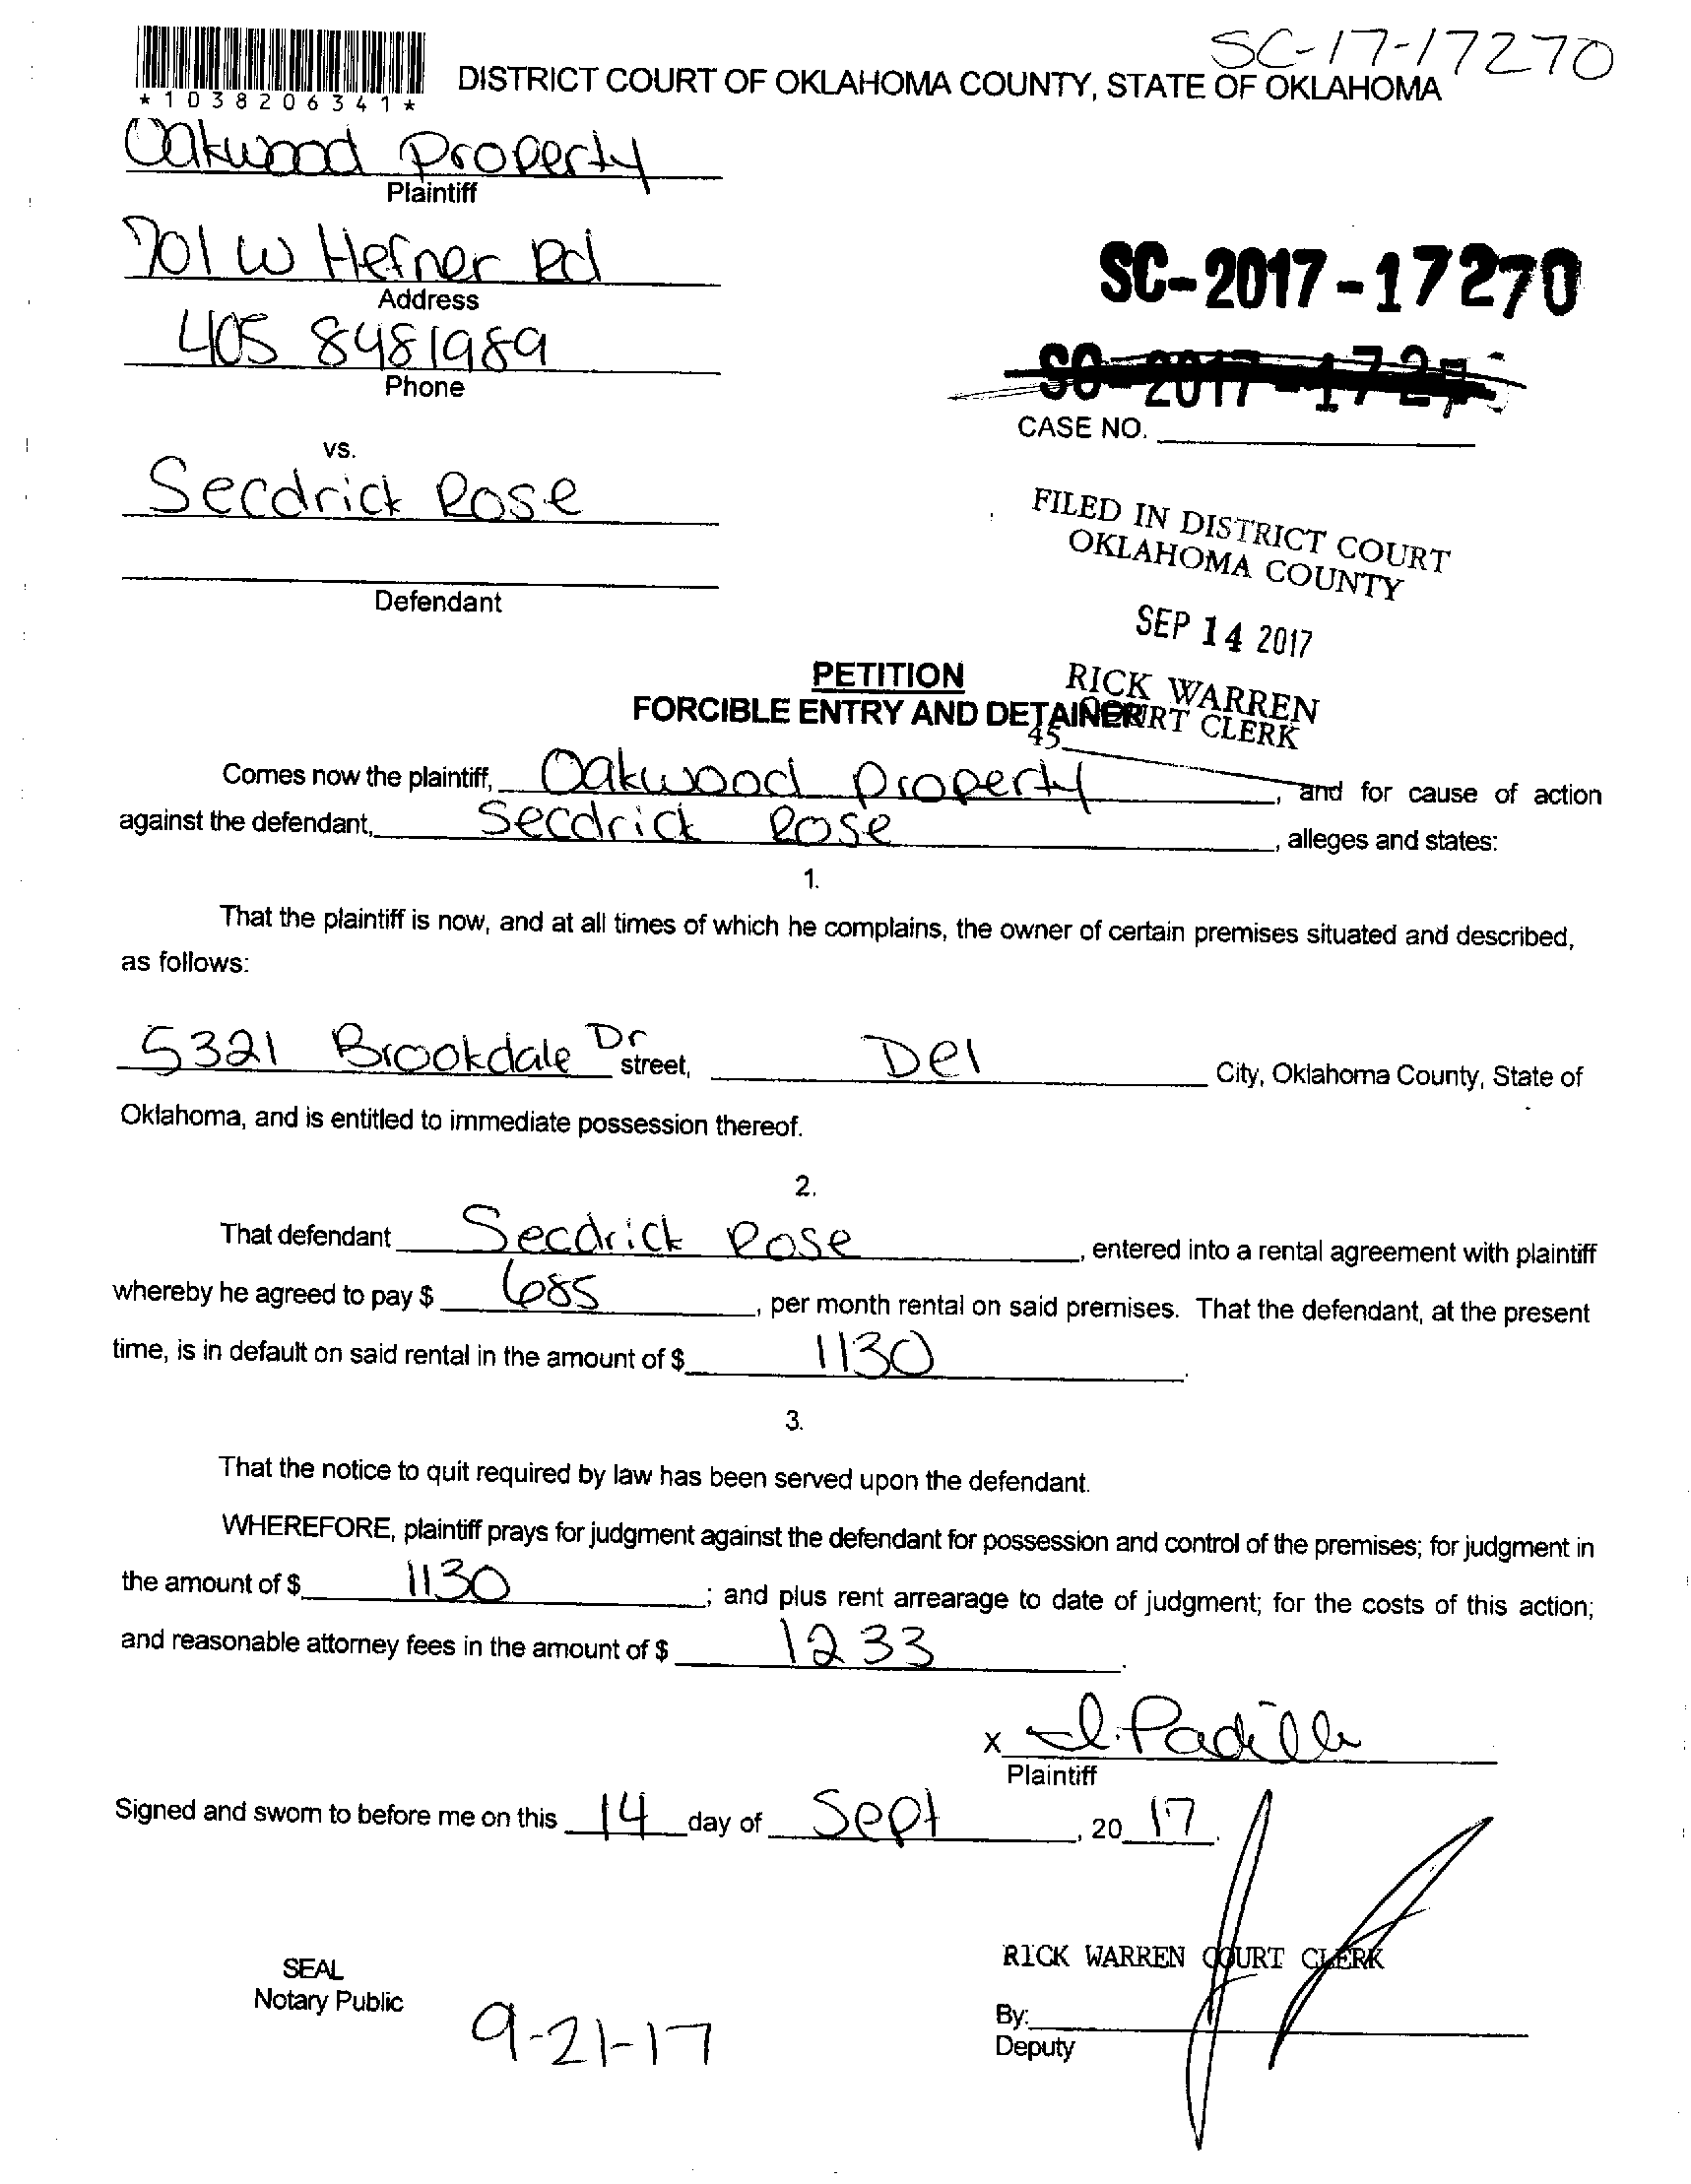 SC-17-17270
*1038206341*
DISTRICT COURT OF OKLAHOMA COUNTY, STATE OF OKLAHOMA
Oakwood Property
Plaintiff
701 W Hefner Rd
Address
SC-2017-17270
405 8481989
Phone
SC-2017-1727
CASE NO.
vs.
Secdrick Rose
FILED IN DISTRICT COURT
OKLAHOMA COUNTY
Defendant
SEP 14 2017
PETITION
RICK WARREN
FORCIBLE ENTRY AND DETAINER
COURT CLERK
45
Comes now the plaintiff, Oakwood Property, and for cause of action
against the defendant, Secdrick Rose, alleges and states:
1.
That the plaintiff is now, and at all times of which he complains, the owner of certain premises situated and described,
as follows:
5321 Brookdale Dr street, Del City, Oklahoma County, State of
Oklahoma, and is entitled to immediate possession thereof.
2.
That defendant Secdrick Rose, entered into a rental agreement with plaintiff
whereby he agreed to pay $ 685, per month rental on said premises. That the defendant, at the present
time, is in default on said rental in the amount of $ 1130.
3.
That the notice to quit required by law has been served upon the defendant.
WHEREFORE, plaintiff prays for judgment against the defendant for possession and control of the premises; for judgment in
the amount of $ 1130; and plus rent arrearage to date of judgment; for the costs of this action;
and reasonable attorney fees in the amount of $ 1233.
X I. Padilla
Plaintiff
Signed and sworn to before me on this 14 day of Sept, 2017.
RICK WARREN COURT CLERK
SEAL
Notary Public
9-21-17
By:
Deputy